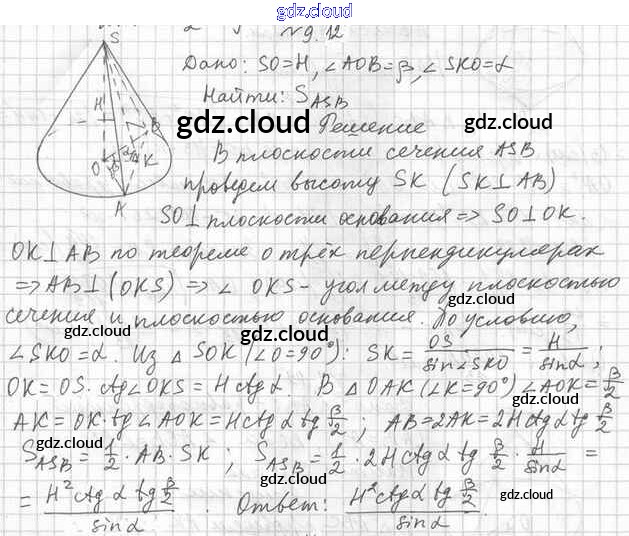 gdz.cloud
№ 9.12
Дано: SO=H, ∠AOB=β, ∠SKO=α
Найти: S_ASB
gdz.cloud Решение gdz.cloud
В плоскости сечения ASB
проведем высоту SK (SK⊥AB)
SO⊥плоскости основания ⇒ SO⊥OK.
gdz.cloud gdz.cloud
OK⊥AB по теореме о трёх перпендикулярах
⇒ AB⊥(OKS) ⇒ ∠ OKS - угол между плоскостью
сечения и плоскостью основания. По условию,
gdz.cloud gdz.cloud
∠SKO=α. Из △ SOK (∠O=90°): SK = OS/sin∠SKO = H/sinα;
OK=OS·ctg∠OKS = H ctg α. В △ OAK (∠K=90°) ∠AOK=β/2
gdz.cloud
AK = OK·tg∠AOK = H ctg α tg β/2; AB=2AK=2H ctg α tg β/2
gdz.cloud gdz.cloud
S_ASB = 1/2 · AB · SK; S_ASB = 1/2 · 2H ctg α tg β/2 · H/sinα =
gdz.cloud
= H² ctg α tg β/2 / sinα. Ответ: H² ctg α tg β/2 / sinα.
gdz.cloud gdz.cloud gdz.cloud
S
H
O
β
α
K
B
A